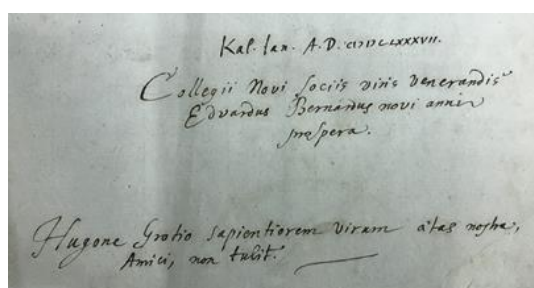 Kal. Ian. A.D. CIↃIↃCLXXXVII.
Collegii Novi Sociis viris venerandis
Edvardus Bernardus novi anni
prospera.
Hugone Grotio sapientiorem virum ætas nostra,
Amici, non tulit.